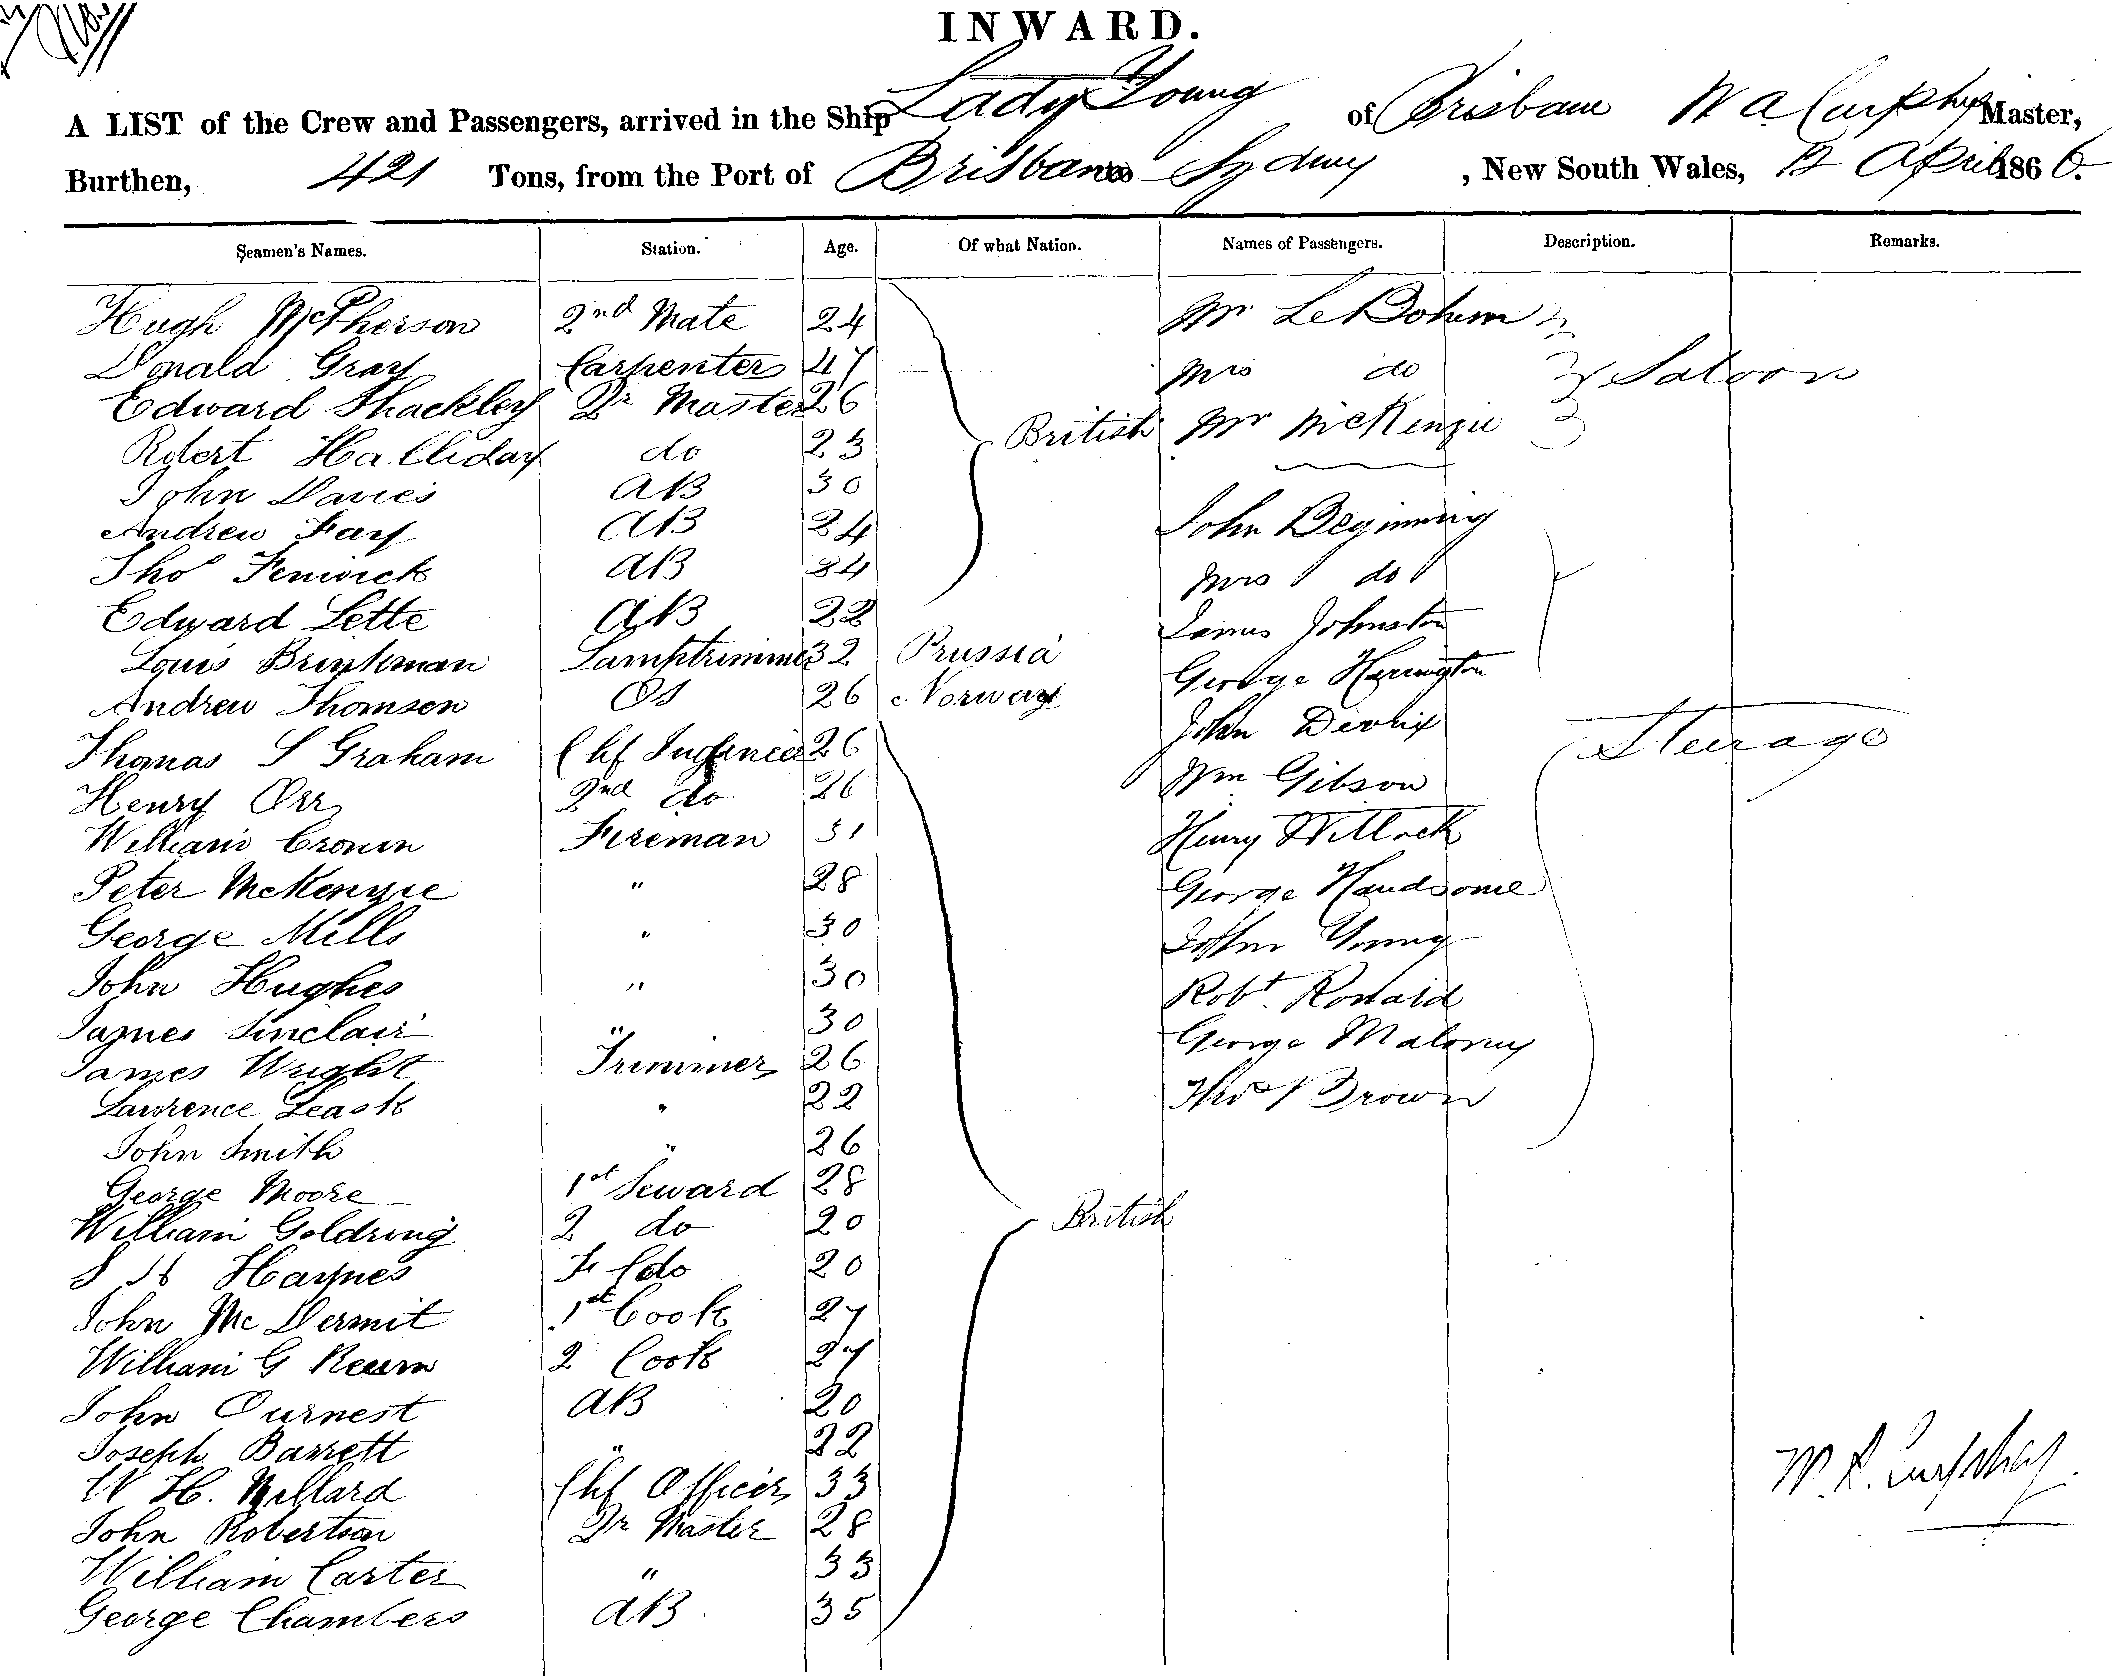 INWARD.
A LIST of the Crew and Passengers, arrived in the Ship Lady Young of Brisbane W A Curphey Master,
Burthen, 421 Tons, from the Port of Brisbane to Sydney, New South Wales, 12 April 1866.
Seamen's Names. Station. Age. Of what Nation. Names of Passengers. Description. Remarks.
Hugh McPherson 2nd Mate 24 Mr LeBohem
Donald Gray Carpenter 47 Mrs do Saloon
Edward Shackley Qr Master 26 British Mr McKenzie
Robert Halliday do 23
John Davies AB 30
Andrew Fay AB 24 John Beginning
Thos Fenwick AB 34 Mrs do
Edward Lette AB 22 James Johnston
Louis Brinkman Lamptrimmer 32 Prussia George Harrington
Andrew Thomson OS 26 Norway John Devlix
Thomas S Graham Chf Ingineer 26 Steerage
Henry Orr 2nd do 26 Wm Gibson
William Cronin Fireman 31 Henry Willock
Peter McKenzie " 28 George Handsome
George Mills " 30 John Young
John Hughes " 30 Robt Ronald
James Sinclair " 30 George Maloney
James Wright Trimmer 26
Lawrence Leask " 22 Thos Brown
John Smith " 26
George Moore 1st Seward 28 British
William Goldring 2 do 20
S H Haynes F C do 20
John McDermit 1st Cook 27
William G Kearn 2 Cook 27
John Ournest AB 20
Joseph Barrett " 22
W H. Millard Chf Officer 33 W. A. Curphey
John Robertson Qr Master 28
William Carter " 33
George Chambers AB 35